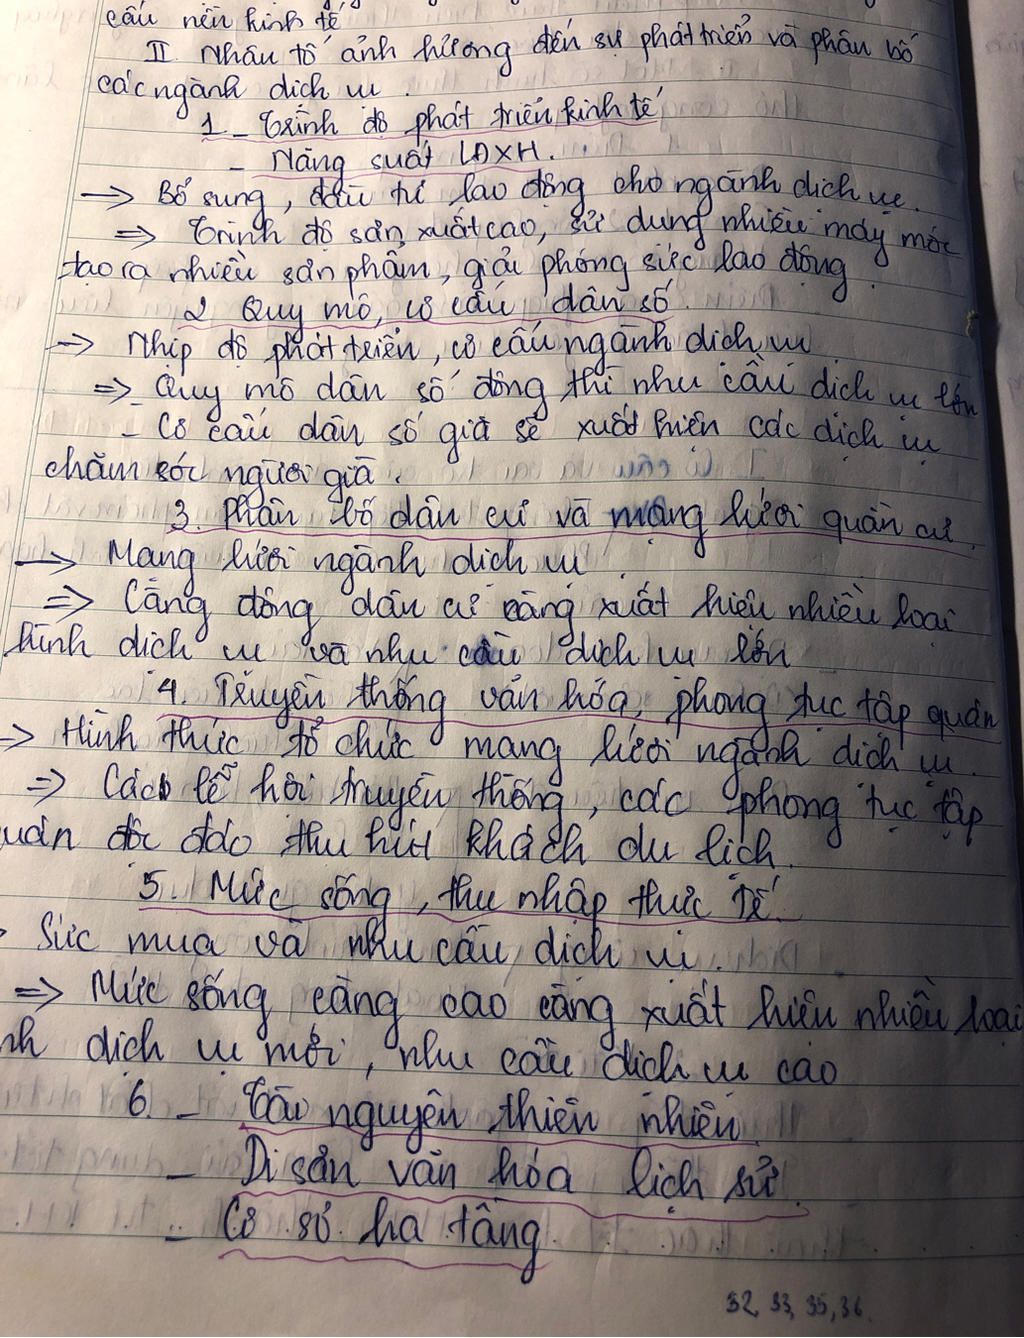 cấu nền kinh tế
II. Nhân tố ảnh hưởng đến sự phát triển và phân bố
các ngành dịch vụ.
1 - Trình độ phát triển kinh tế
- Năng suất LĐXH.
→ Bổ sung, đầu tư lao động cho ngành dịch vụ.
⇒ Trình độ sản xuất cao, sử dụng nhiều máy móc
tạo ra nhiều sản phẩm, giải phóng sức lao động.
2 Quy mô, cơ cấu dân số
→ Nhịp độ phát triển, cơ cấu ngành dịch vụ
⇒ - Quy mô dân số đông thì nhu cầu dịch vụ lớn
- Cơ cấu dân số già sẽ xuất hiện các dịch vụ
chăm sóc người già.
3. Phân bố dân cư và mạng lưới quần cư.
→ Mạng lưới ngành dịch vụ
⇒ Càng đông dân cư càng xuất hiện nhiều loại
hình dịch vụ và nhu cầu dịch vụ lớn
4. Truyền thống văn hóa, phong tục tập quán
→ Hình thức tổ chức mạng lưới ngành dịch vụ.
⇒ Các lễ hội truyền thống, các phong tục tập
uán độc đáo thu hút khách du lịch.
5. Mức sống, thu nhập thực tế
Sức mua và nhu cầu dịch vụ.
⇒ Mức sống càng cao càng xuất hiện nhiều loại
nh dịch vụ mới, nhu cầu dịch vụ cao
6. - Tài nguyên thiên nhiên
- Di sản văn hóa lịch sử.
- Cơ sở hạ tầng
32, 33, 35, 36.